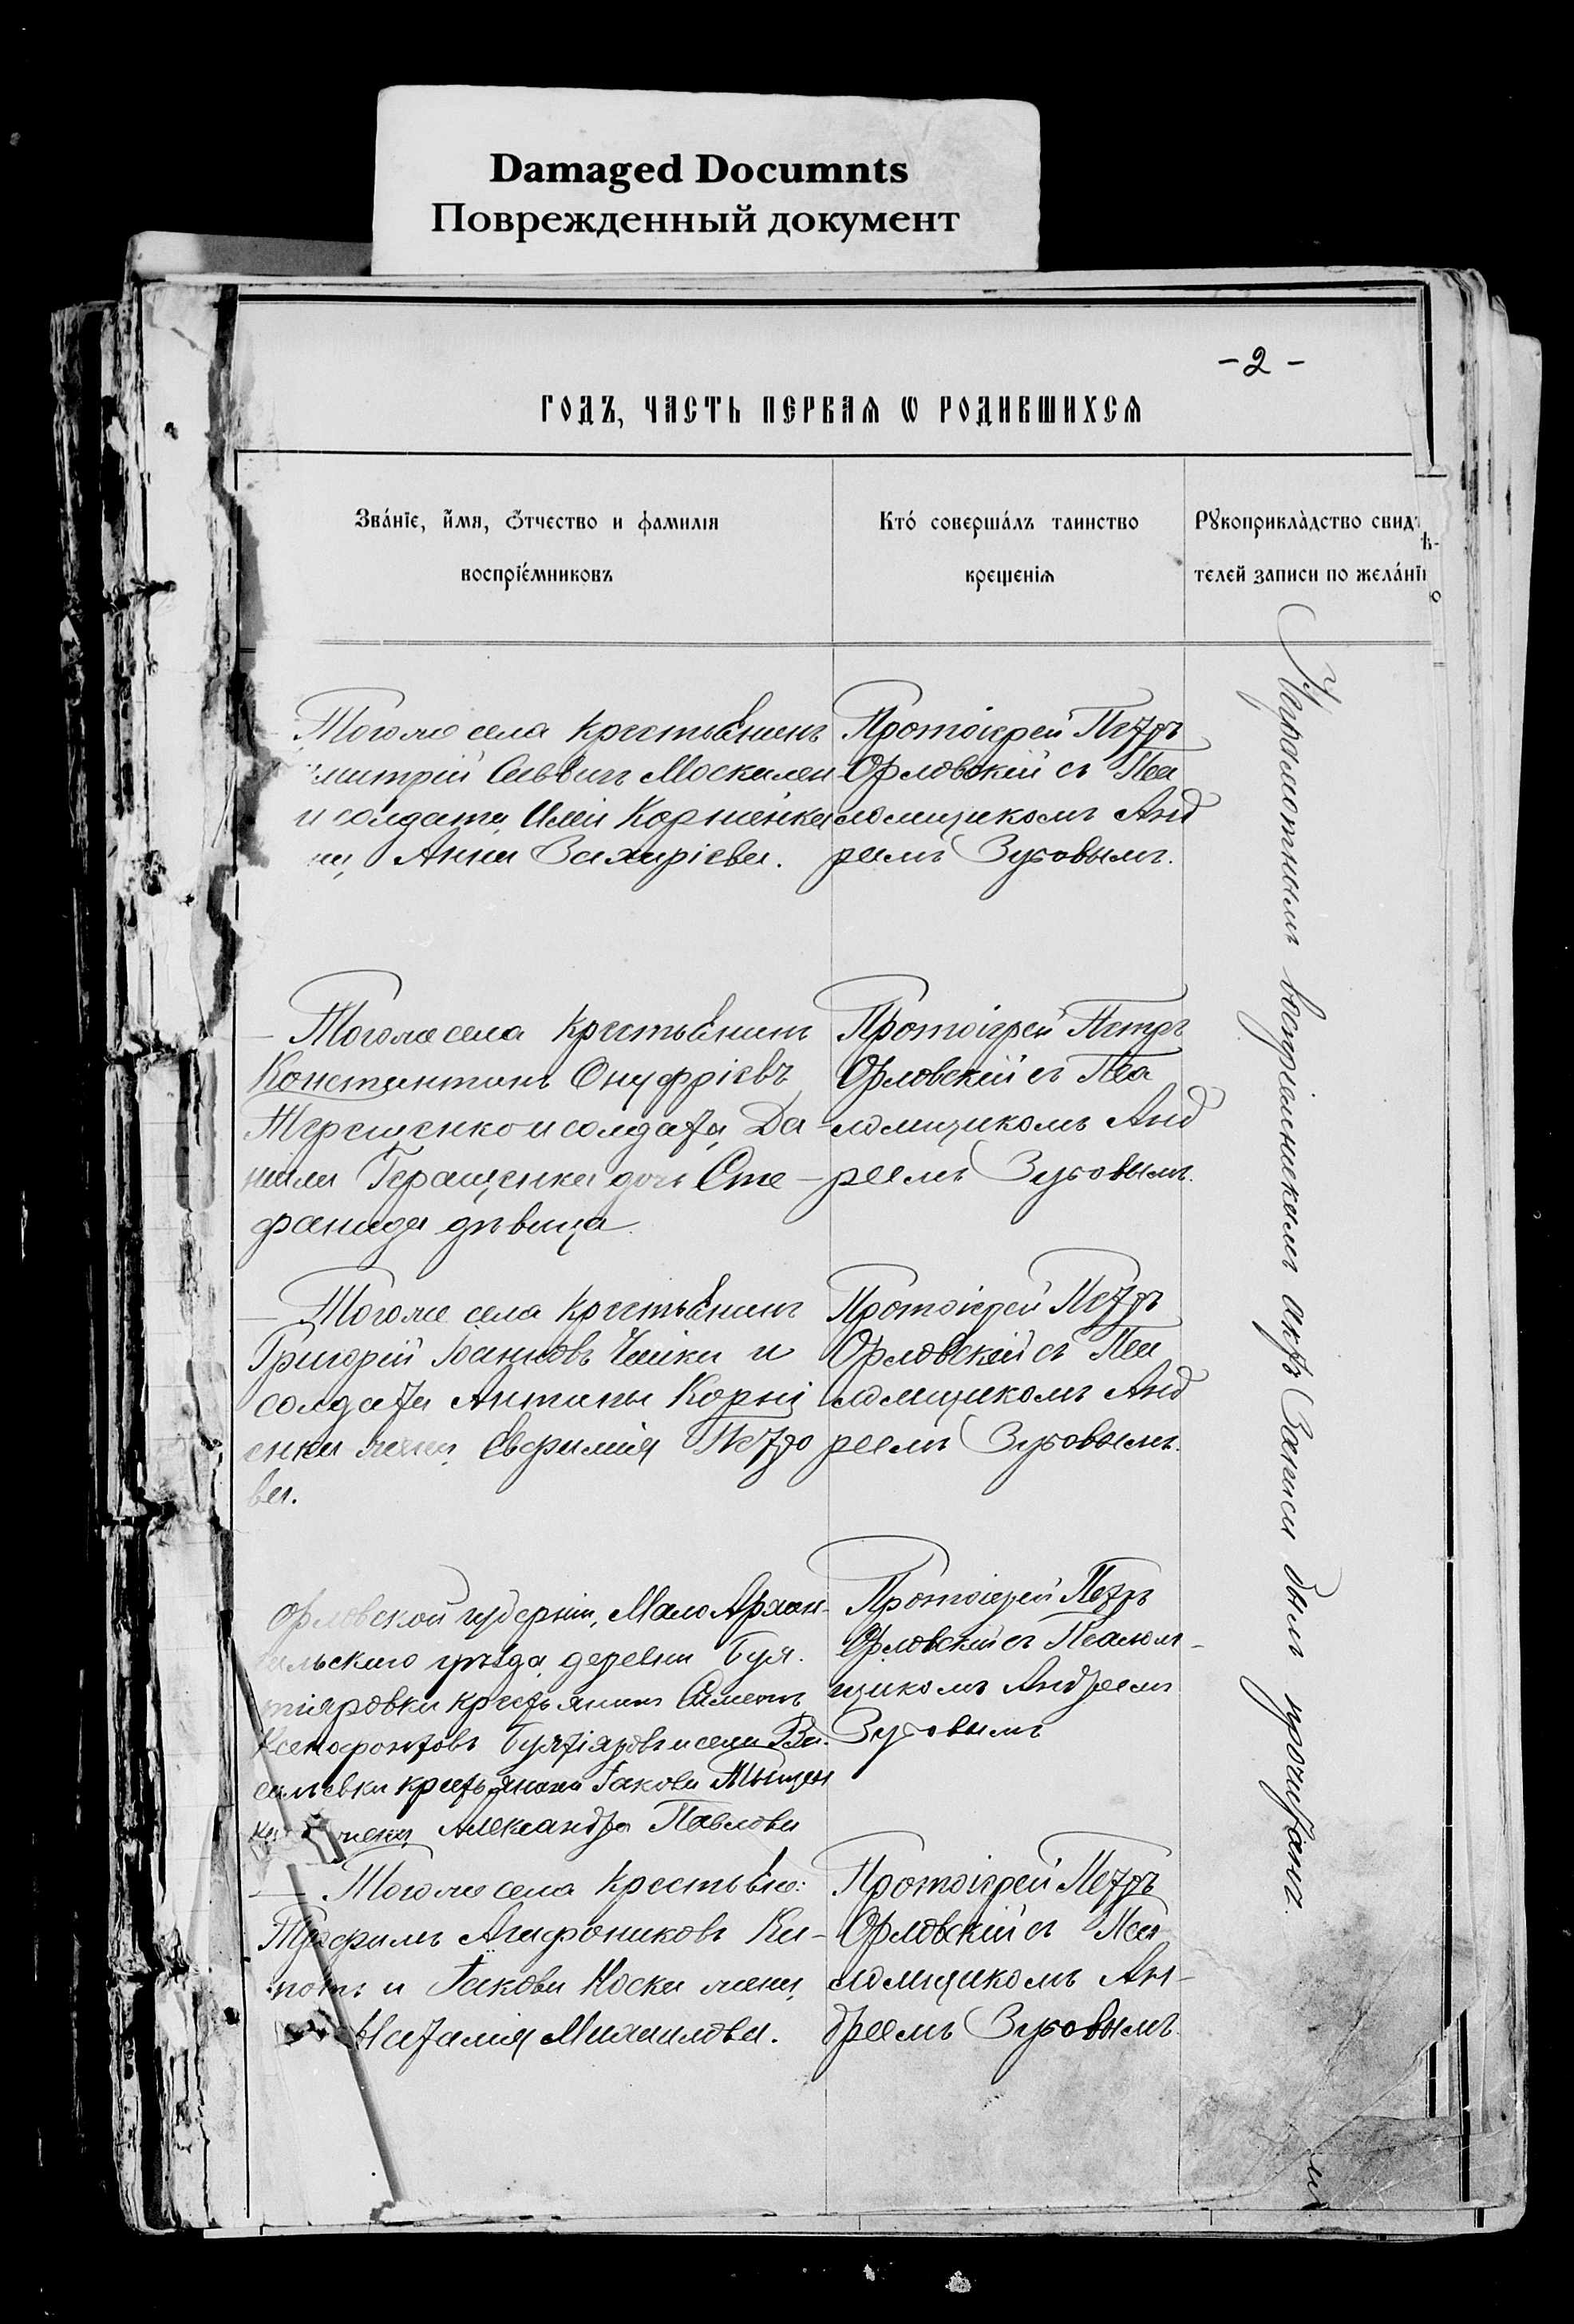 Damaged Documnts
Поврежденный документ
- 2 -
годъ, часть первая ѡ родившихся
Зва́нїе, и́мя, ѻ́тчество и фамилїя
воспрїе́мниковъ
Кто́ соверша́лъ таинство
крещенїя
Рꙋкоприкла̀дство свидѣ-
телей записи по жела́нїю
Тогоже села крестьянинъ
митрій Саввинъ Москален
и солдата Иліи Корніенка
на, Анна Захаріева.
Протоіерей Петръ
Орловскій съ Пса
ломщикомъ Анд
реемъ Зубовымъ.
— Тогоже села крестьянинъ
Константинъ Онуфріевъ
Терещенко и солдата Да-
ніила Геращенка дочь Сте-
фанида дѣвица.
Протоіерей Петръ
Орловскій съ Пса
ломщикомъ Анд
реемъ Зубовымъ.
— Тогоже села крестьянинъ
Григорій Іоанновъ Чайка и
солдата Антипы Корні
енка жена Евфимія Петро
ва.
Протоіерей Петръ
Орловскій съ Пса
ломщикомъ Анд
реемъ Зубовымъ.
Орловской губерніи, Мало Архан-
гельскаго уѣзда деревни
крестьянинъ Симеонъ
Ксенофонтовъ и села Ва-
сильевки крестьянина Іакова
жена Александра Павлова
Протоіерей Петръ
Орловскій съ Псалом-
щикомъ Андреемъ
Зубовымъ
— Тогоже села крестьян:
Трофимъ Агафониковъ Ки-
и Іакова Носка жена
Наталія Михаилова.
Протоіерей Петръ
Орловскій съ Пса
ломщикомъ Ан-
дреемъ Зубовымъ.
Неграмотнымъ воспріемникамъ актъ Записи былъ прочитанъ.